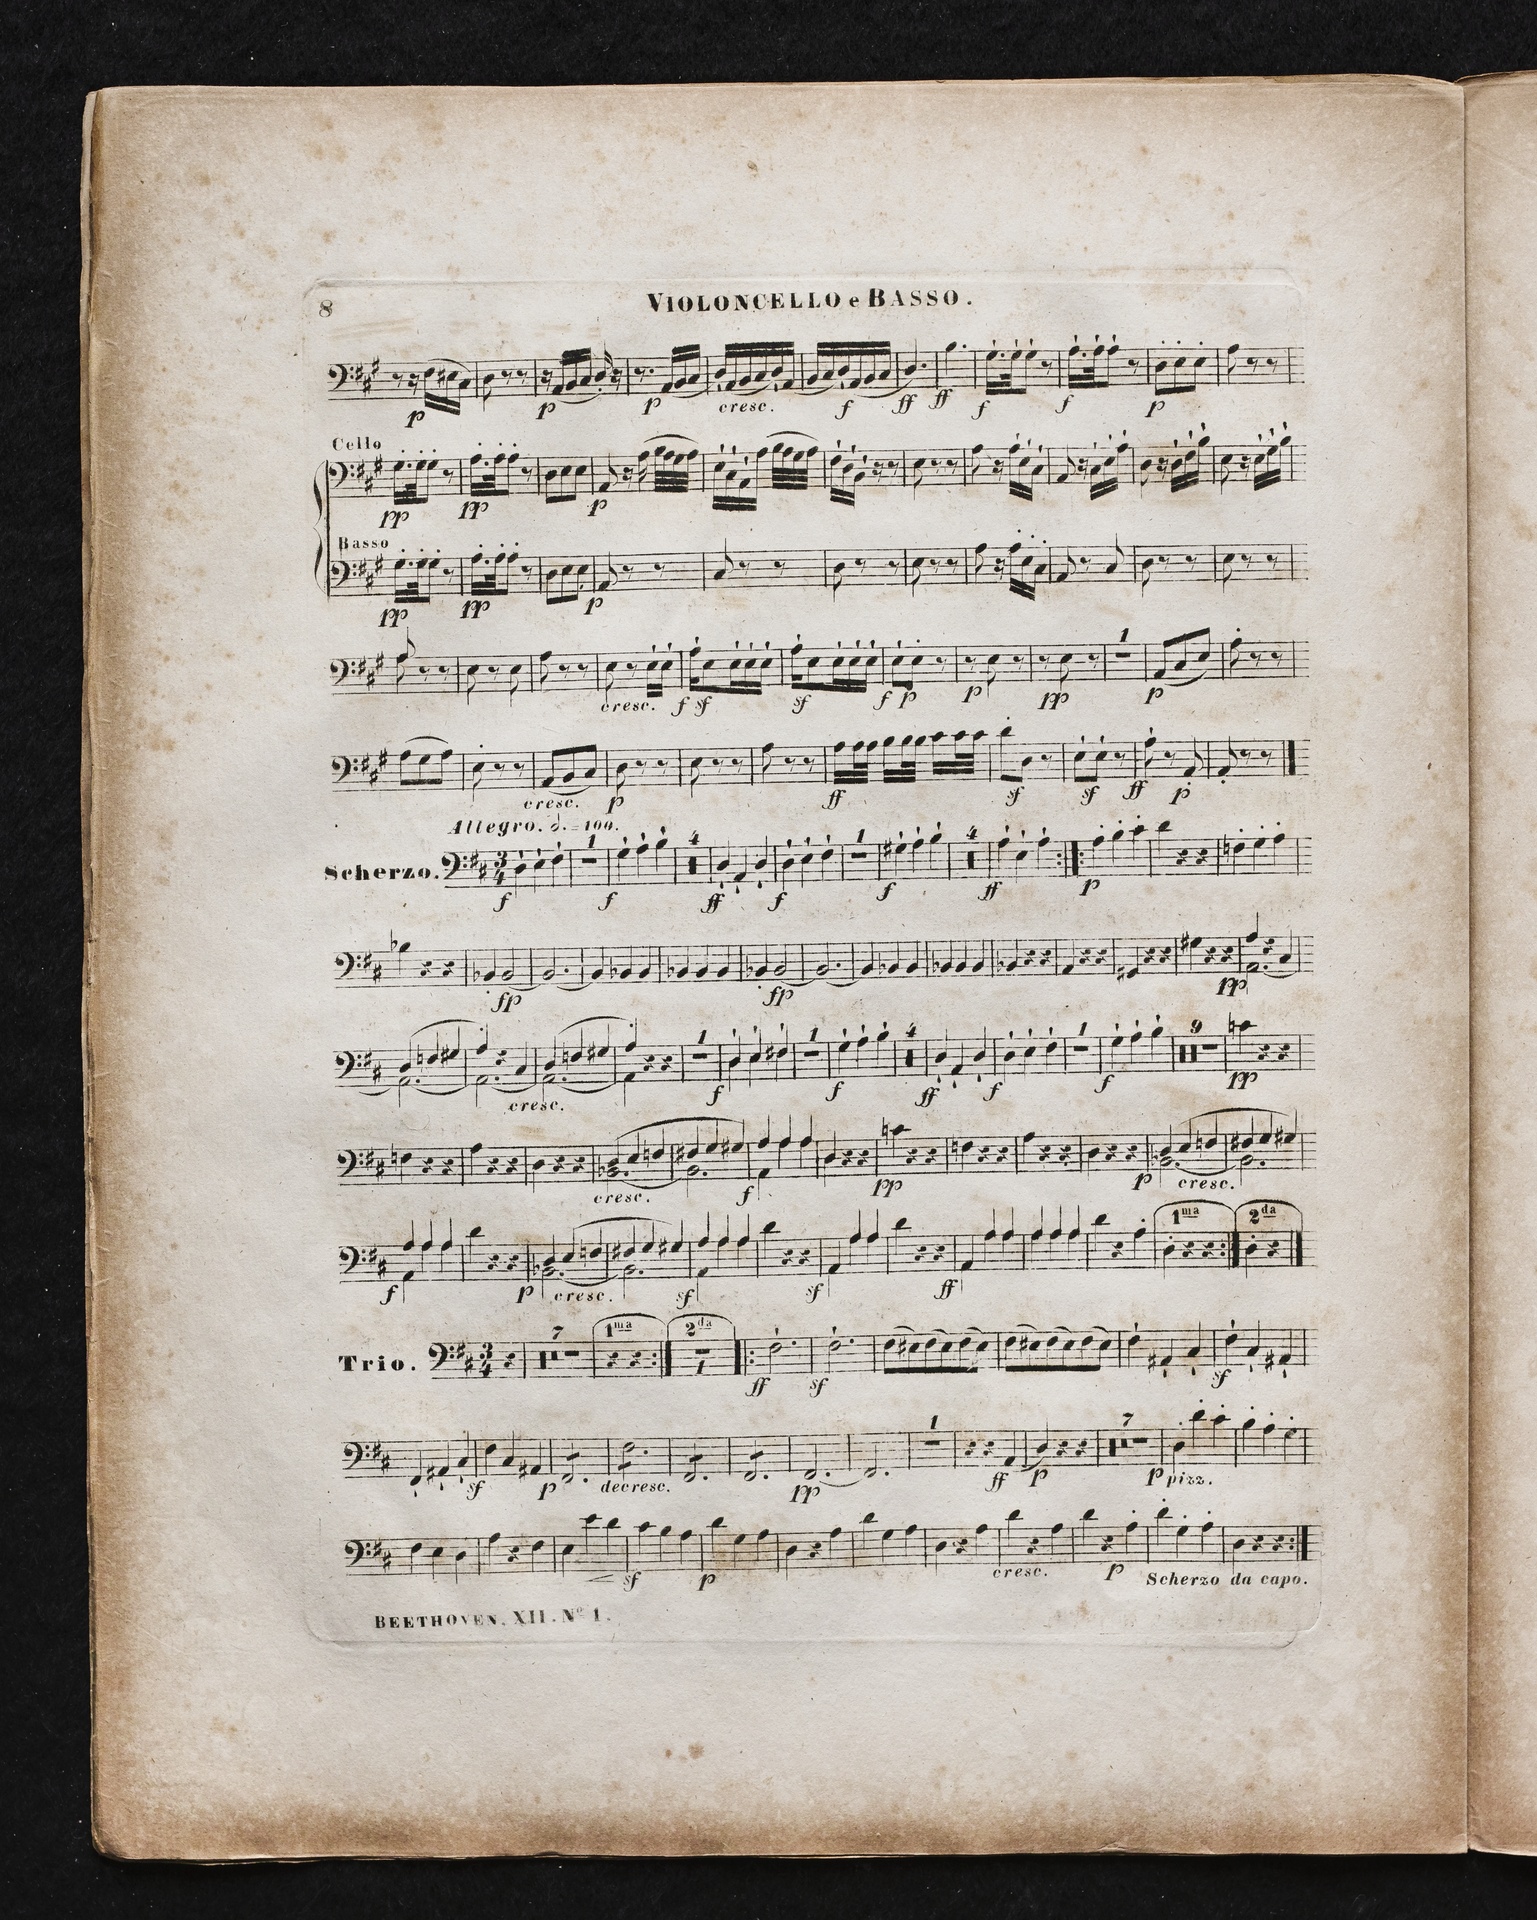 8
VIOLONCELLO e BASSO.
p p p cresc. f ff ff f f p
Cello
pp pp p
Basso
pp pp p
1
cresc. f sf sf f p p pp p
cresc. p ff sf sf ff p
Allegro. 𝅗𝅥. = 100.
Scherzo. 3 4 1 4 1 4
f f ff f f ff p
fp fp pp
1 1 4 1 9
cresc. f f ff f f pp
cresc. f pp p cresc.
1ma 2da
f p cresc. sf sf ff
7 1ma 2da
Trio. 3 4 1
ff sf sf
1 7
sf p decresc. pp ff p p pizz.
sf p cresc. p Scherzo da capo.
BEETHOVEN. XII. No 1.